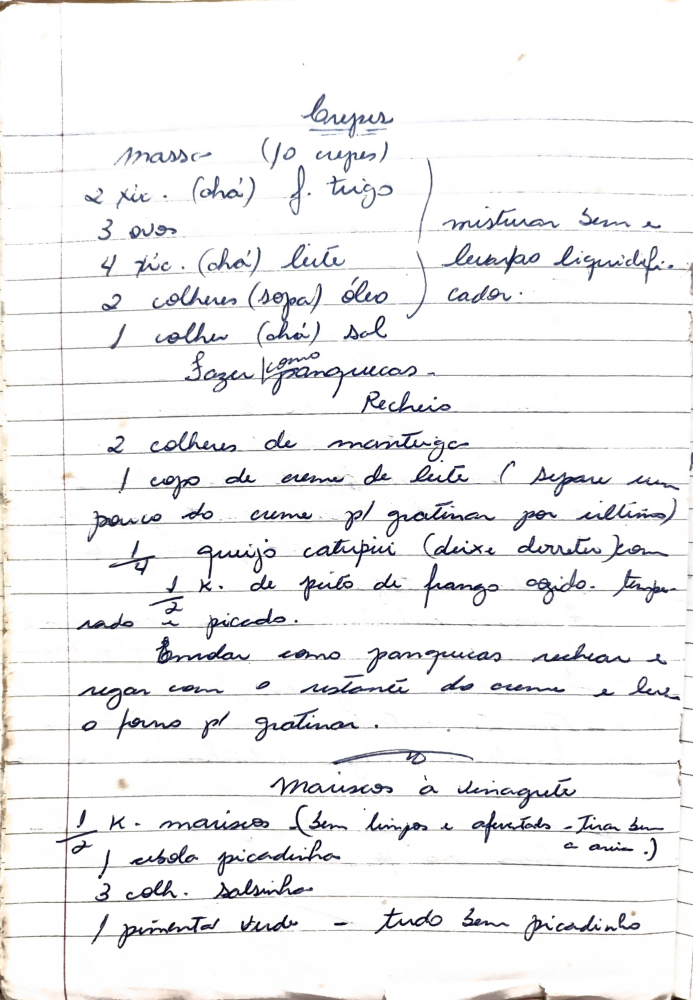 Crepes
massa (10 crepes)
2 xic. (chá) f. trigo
3 ovos
4 xic. (chá) leite
2 colheres (sopa) óleo
1 colher (chá) sal
misturar bem e
levar ao liquidifi-
cador.
Fazer como panquecas.
Recheio
2 colheres de manteiga
1 copo de creme de leite (separe um
pouco do creme p/ gratinar por último)
1/4 queijo catupiri (deixe derreter) com
1/2 K. de peito de frango cozido. tempe-
rado e picado.
Enrolar como panquecas rechear e
regar com o restante do creme e leve
o forno p/ gratinar.
Mariscos à vinagrete
1/2 K. mariscos (bem limpos e aferventado - Tirar bem
a areia.)
1 cebola picadinha
3 colh. salsinha
1 pimenta verde - tudo bem picadinho